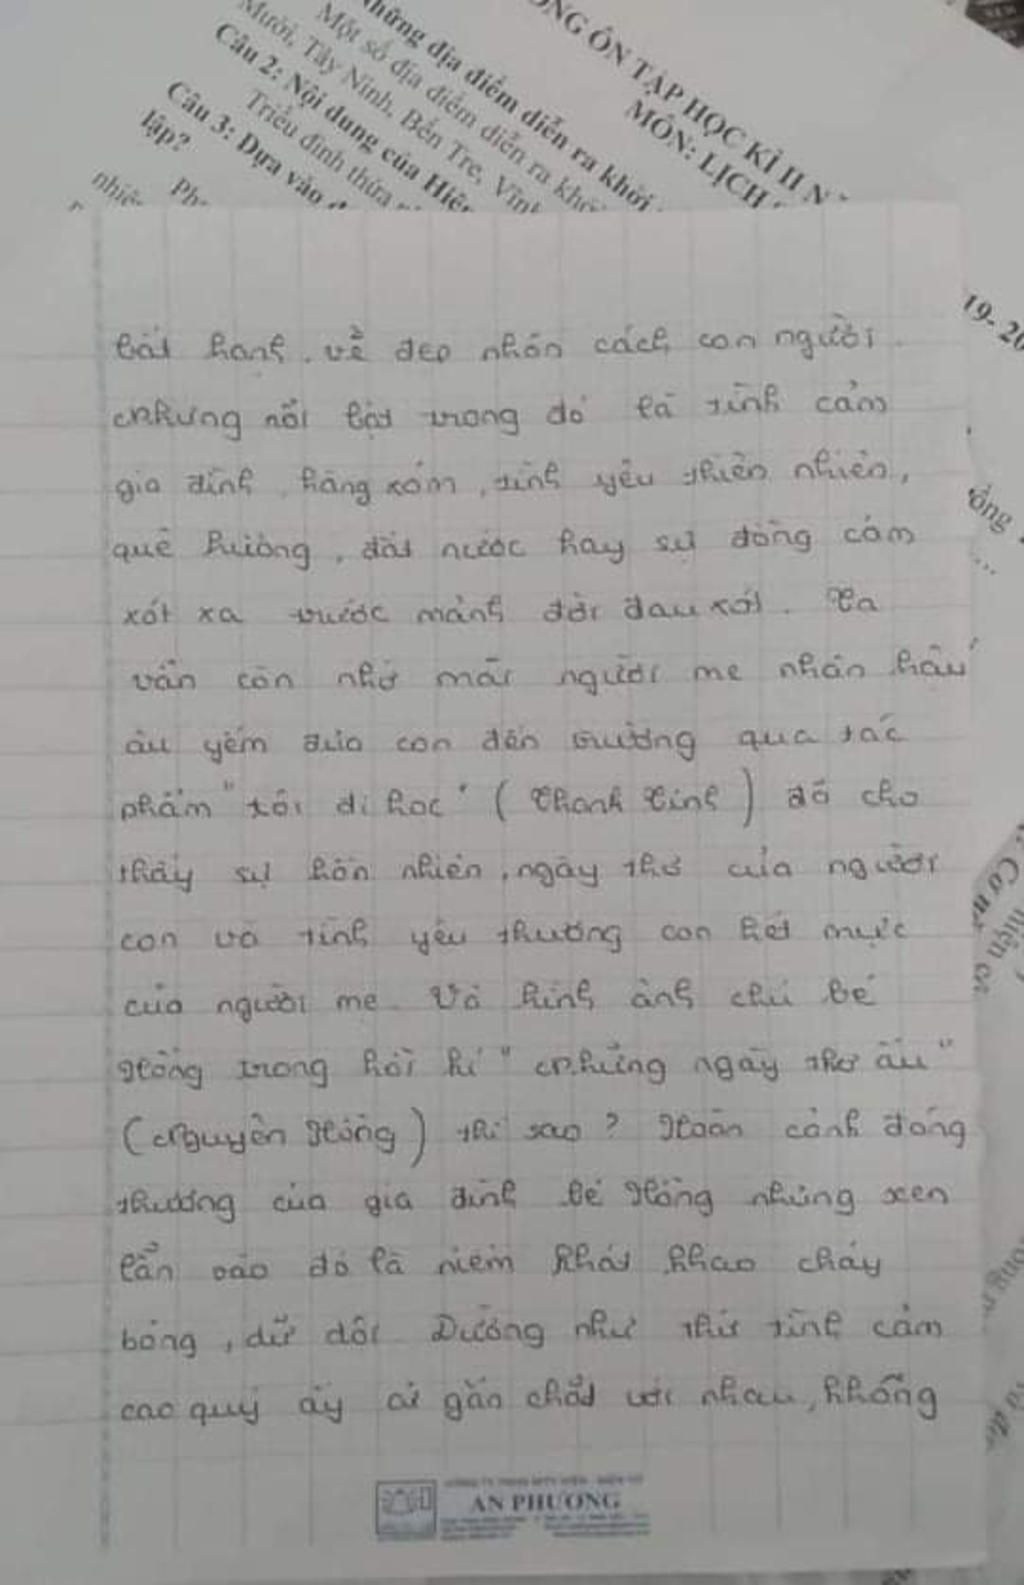 ƠNG ÔN TẬP HỌC KÌ II N
MÔN: LỊCH
những địa điểm diễn ra khởi
Một số địa điểm diễn ra khởi
Mười, Tây Ninh, Bến Tre, Vĩnh
Câu 2: Nội dung của Hiệ
Triều đình thừa
Câu 3: Dựa vào
lập?
nhiê
19- 20
bất hạnh, về đẹp nhân cách con người.
Nhưng nổi bật trong đó là tình cảm
gia đình, hàng xóm, tình yêu thiên nhiên,
quê hương, đất nước hay sự đồng cảm
xót xa trước mảnh đời đau xót. Ta
vẫn còn nhớ mãi người mẹ nhân hậu
âu yếm đưa con đến trường qua tác
phẩm "tôi đi học" (Thanh Tịnh) đã cho
thấy sự hồn nhiên, ngây thơ của người
con và tình yêu thương con hết mực
của người mẹ. Và hình ảnh chú bé
Hồng trong hồi kí "Những ngày thơ ấu"
(Nguyên Hồng) thì sao? Hoàn cảnh đáng
thương của gia đình bé Hồng nhưng xen
lẫn vào đó là niềm khát khao cháy
bỏng, dữ dội. Dường như thứ tình cảm
cao quý ấy cứ gắn chặt với nhau, không
AN PHƯƠNG